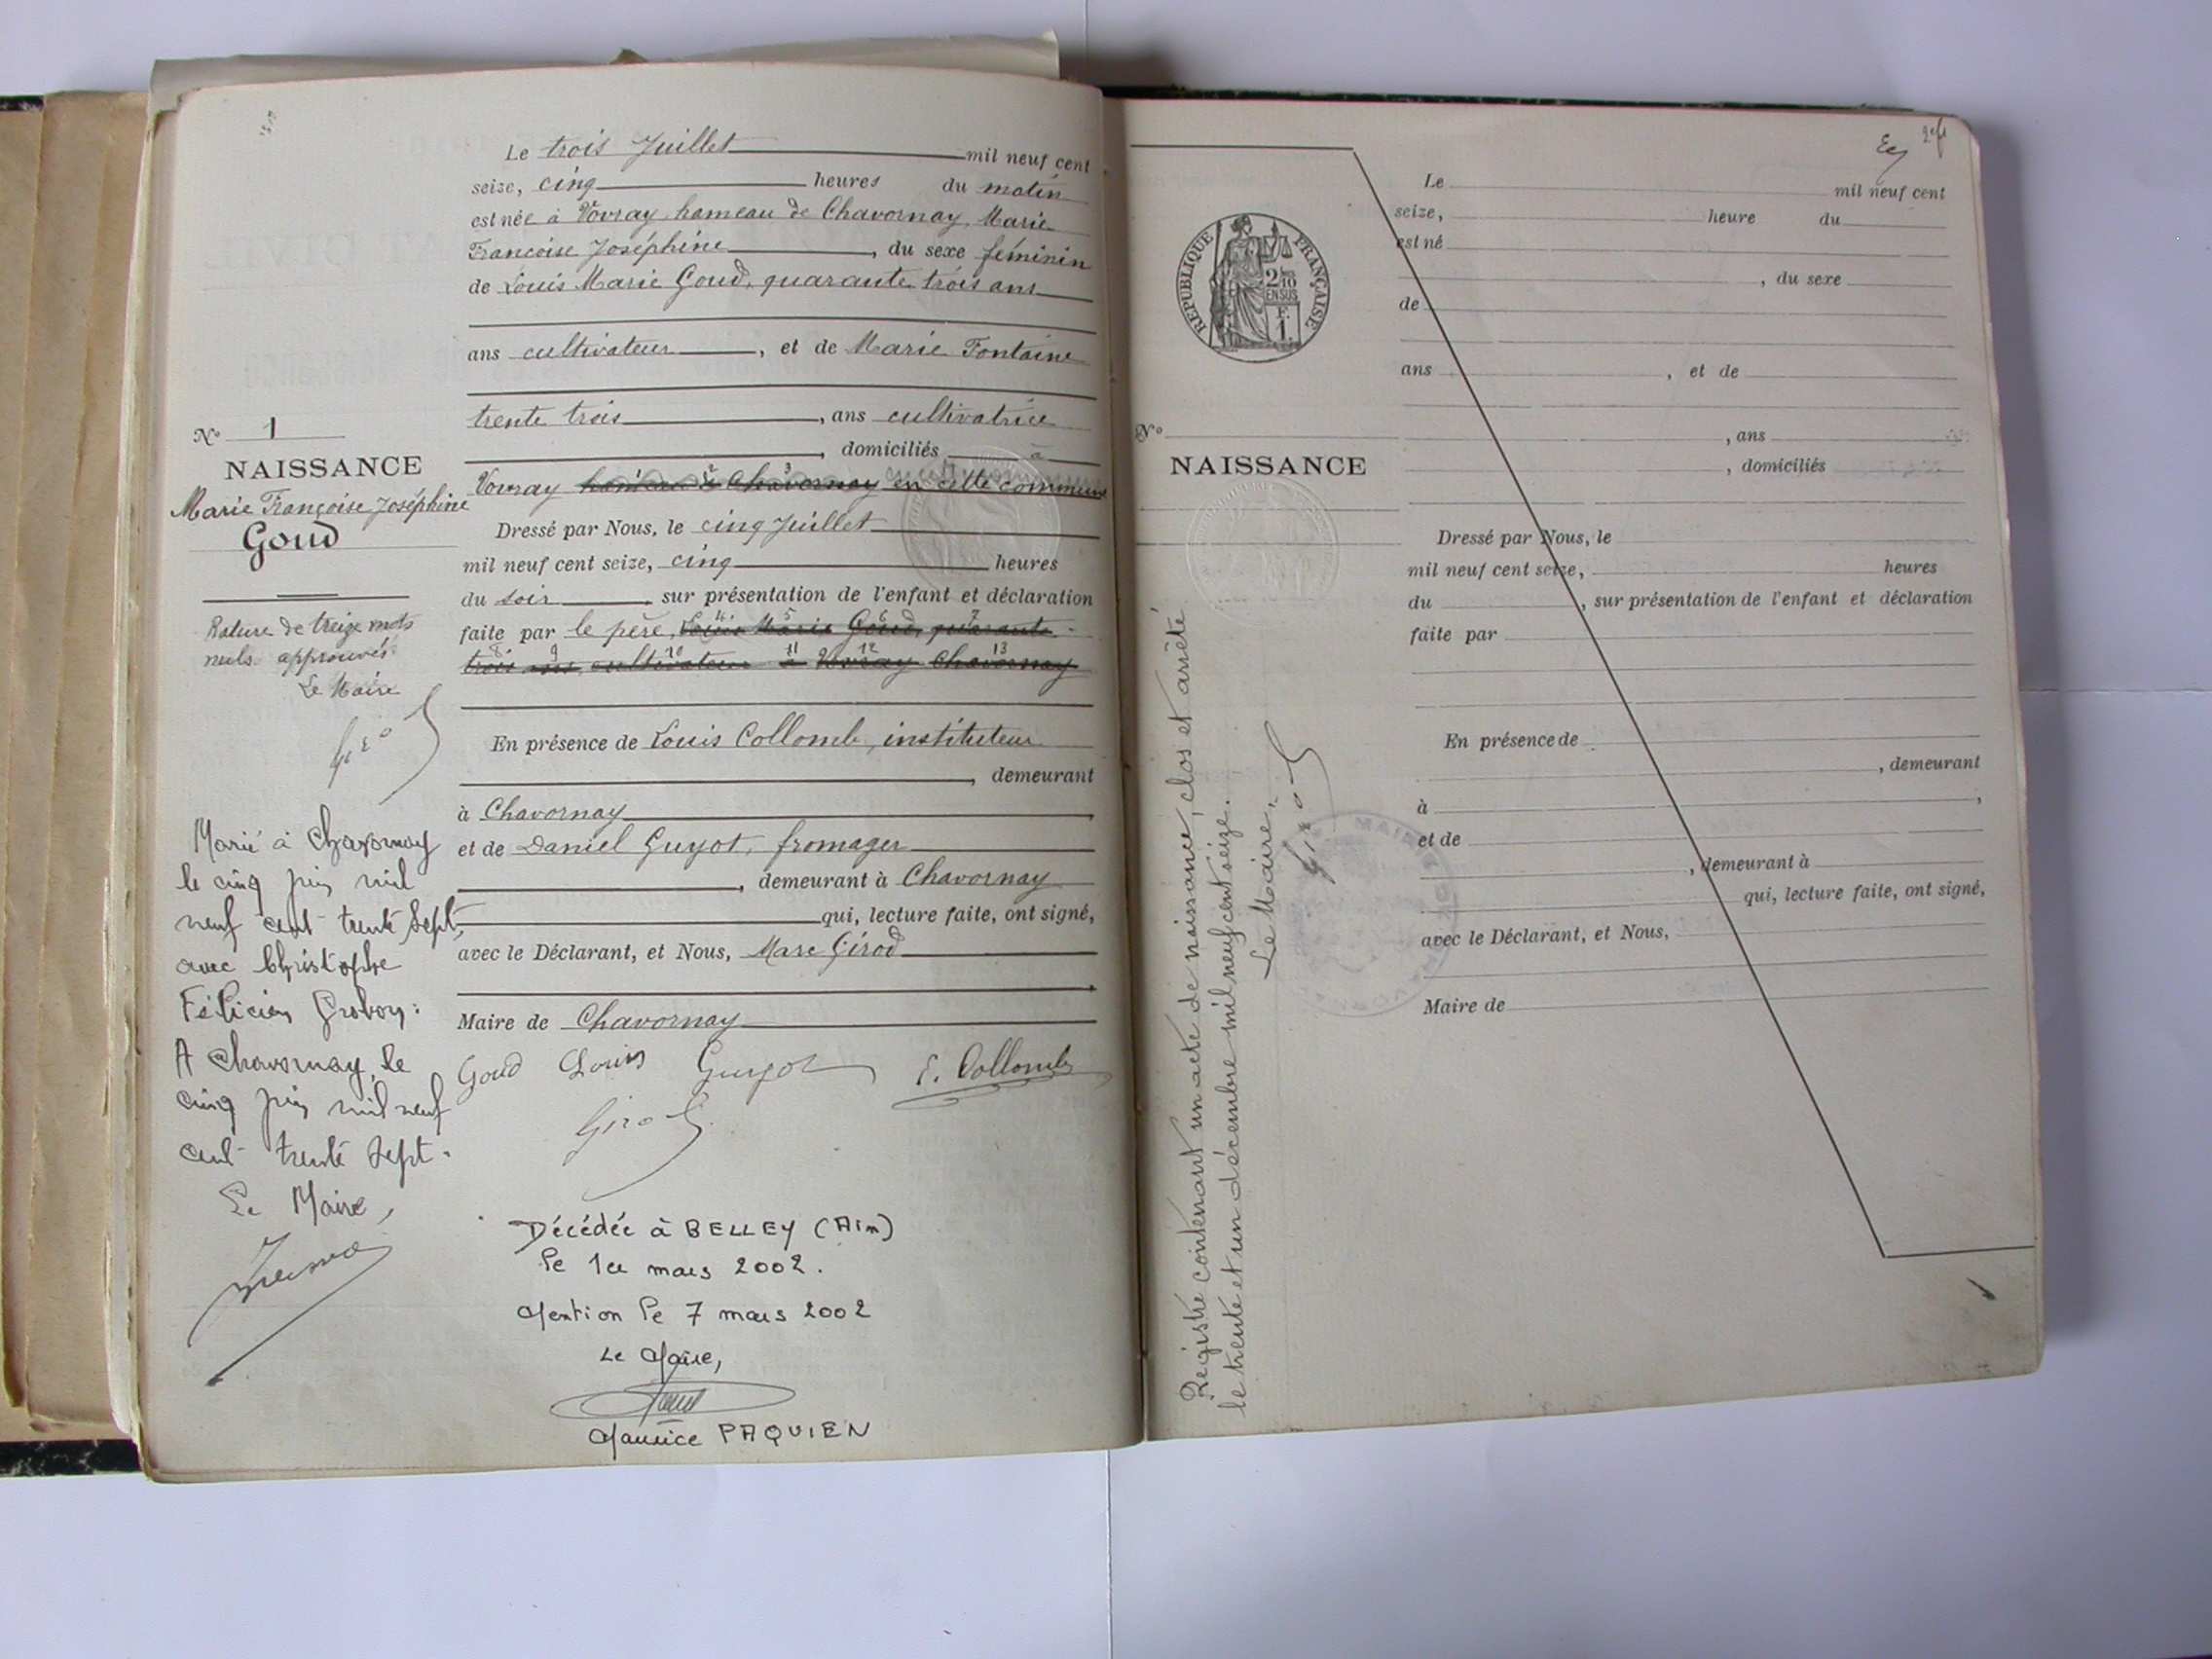 Le trois Juillet mil neuf cent
seize, cinq heures du matin
est née à Vovray hameau de Chavornay Marie
Francoise Joséphine, du sexe féminin
de Louis Marie Goud, quarante trois ans
ans cultivateur, et de Marie Fontaine
trente trois, ans cultivatrice
, domiciliés à
Vovray hameau de Chavornay en cette commune
Dressé par Nous, le cinq Juillet
mil neuf cent seize, cinq heures
du soir, sur présentation de l'enfant et déclaration
faite par le père, Louis Marie Goud, quarante
trois ans cultivateur à Vovray Chavornay
En présence de Louis Collomb, instituteur
, demeurant
à Chavornay
et de Daniel Guyot, fromager
, demeurant à Chavornay
qui, lecture faite, ont signé,
avec le Déclarant, et Nous, Marc Girod
Maire de Chavornay
Goud Louis Guyot Collomb
Girod
Décédée à BELLEY (Ain)
le 1er mars 2002.
Mention le 7 mars 2002
Le Maire,
Maurice PAQUIEN
N° 1
NAISSANCE
Marie Françoise Joséphine
Goud
Rature de treize mots
nuls approuvés
Le Maire
Girod
Marié à Chavornay
le cinq juin mil
neuf cent trente sept,
avec Christophe
Félicien Grobon:
A Chavornay, le
cinq juin mil neuf
cent trente sept.
Le Maire,
REPUBLIQUE FRANÇAISE
2/10
EN SUS
F.
1.
N°
NAISSANCE
Le mil neuf cent
seize, heure du
est né
, du sexe
de
ans , et de
, ans
, domiciliés
Dressé par Nous, le
mil neuf cent seize, heures
du , sur présentation de l'enfant et déclaration
faite par
En présence de
, demeurant
à ,
et de
, demeurant à
qui, lecture faite, ont signé,
avec le Déclarant, et Nous,
Maire de
Registre contenant un acte de naissance, clos et arrêté
le trente et un décembre mil neuf cent seize.
Le Maire,
Girod